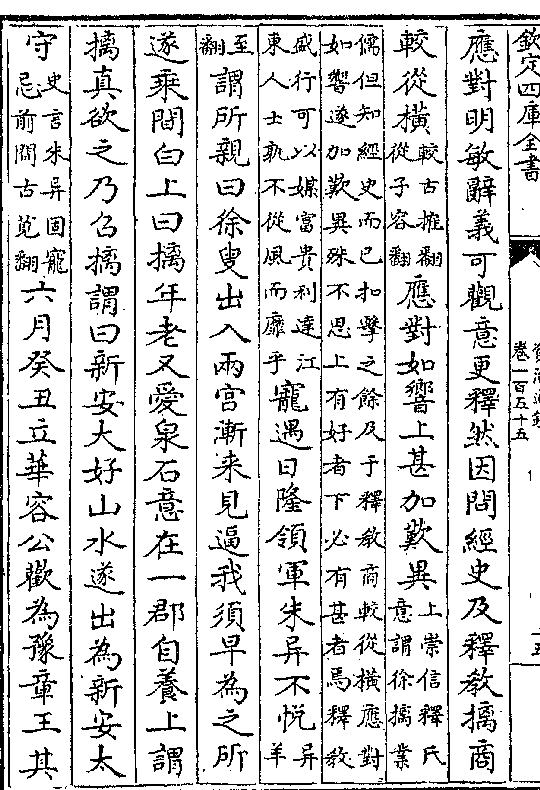 欽定四庫全書
卷一百五十五
應對明敏辭義可觀意更釋然因問經史及釋教摛商
較從橫較古搉翻從子容翻應對如響上甚加歎異上崇信釋氏意謂徐摛業
儒但知經史而已扣擊之餘及于釋教商較從橫應對
如響遂加歎異殊不思上有好者下必有甚者焉釋教
盛行可以媒富貴利達江東人士孰不從風而靡乎寵遇日隆領軍朱异不悅异羊
至翻謂所親曰徐叟出入兩宮漸來見逼我須早為之所
遂乘間白上曰摛年老又愛泉石意在一郡自養上謂
摛真欲之乃召摛謂曰新安大好山水遂出為新安太
守史言朱异固寵忌前間古莧翻六月癸丑立華容公歡為豫章王其